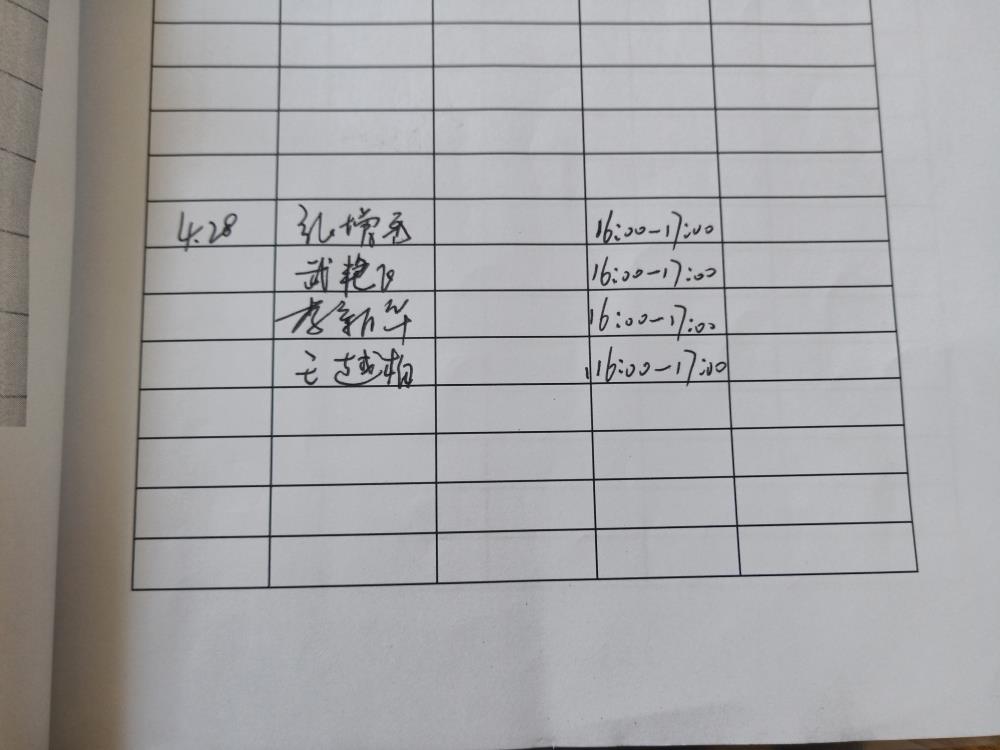 4.28 张增 16:00-17:00
武艳 16:00-17:00
李新华 16:00-17:00
王越柏 16:00-17:00